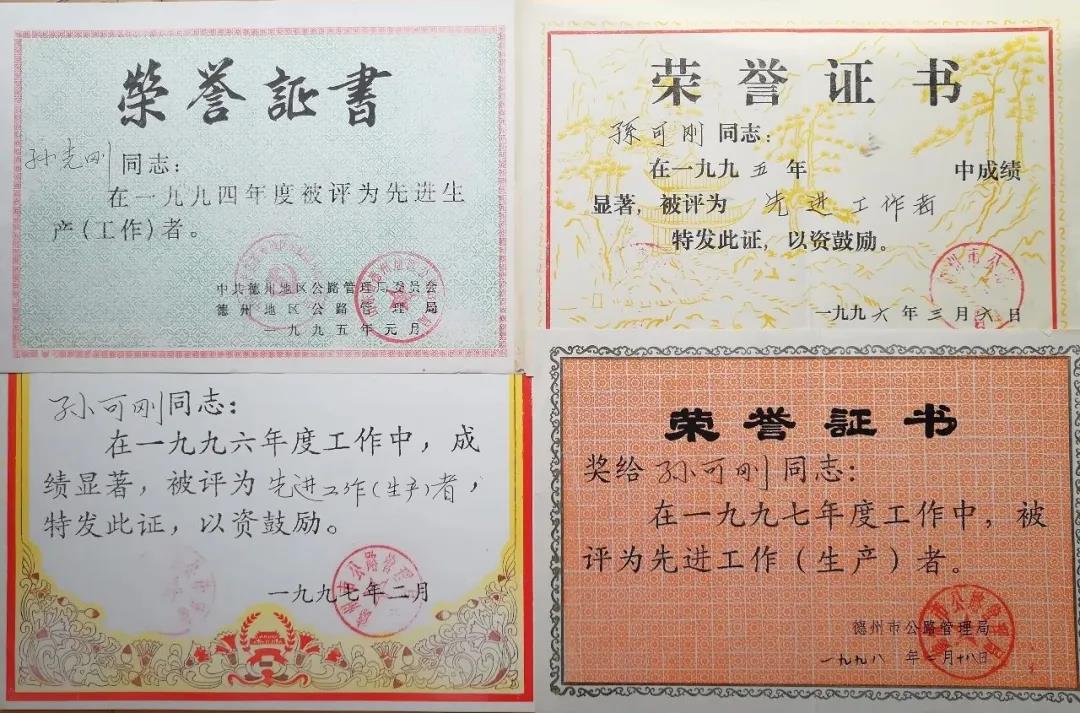 榮誉証書
孙克刚同志：
在一九九四年度被评为先进生
产（工作）者。
中共德州地区公路管理局委员会
德州地区公路管理局
一九九五年元月
荣誉证书
孫可刚同志：
在一九九五年 中成绩
显著，被评为 先进工作者
特发此证，以资鼓励。
一九九六年三月六日
孙可刚同志：
在一九九六年度工作中，成
绩显著，被评为先进工作（生产）者，
特发此证，以资鼓励。
一九九七年二月
荣誉証书
奖给孙可刚同志：
在一九九七年度工作中，被
评为先进工作（生产）者。
德州市公路管理局
一九九八年一月十八日